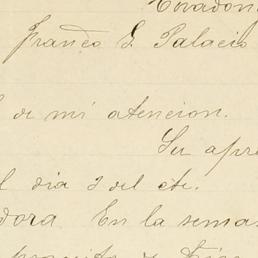 Covadon
Franco G. Palacio
de mi atencion.
Su apre
l dia 2 del cte.
dora En la sema